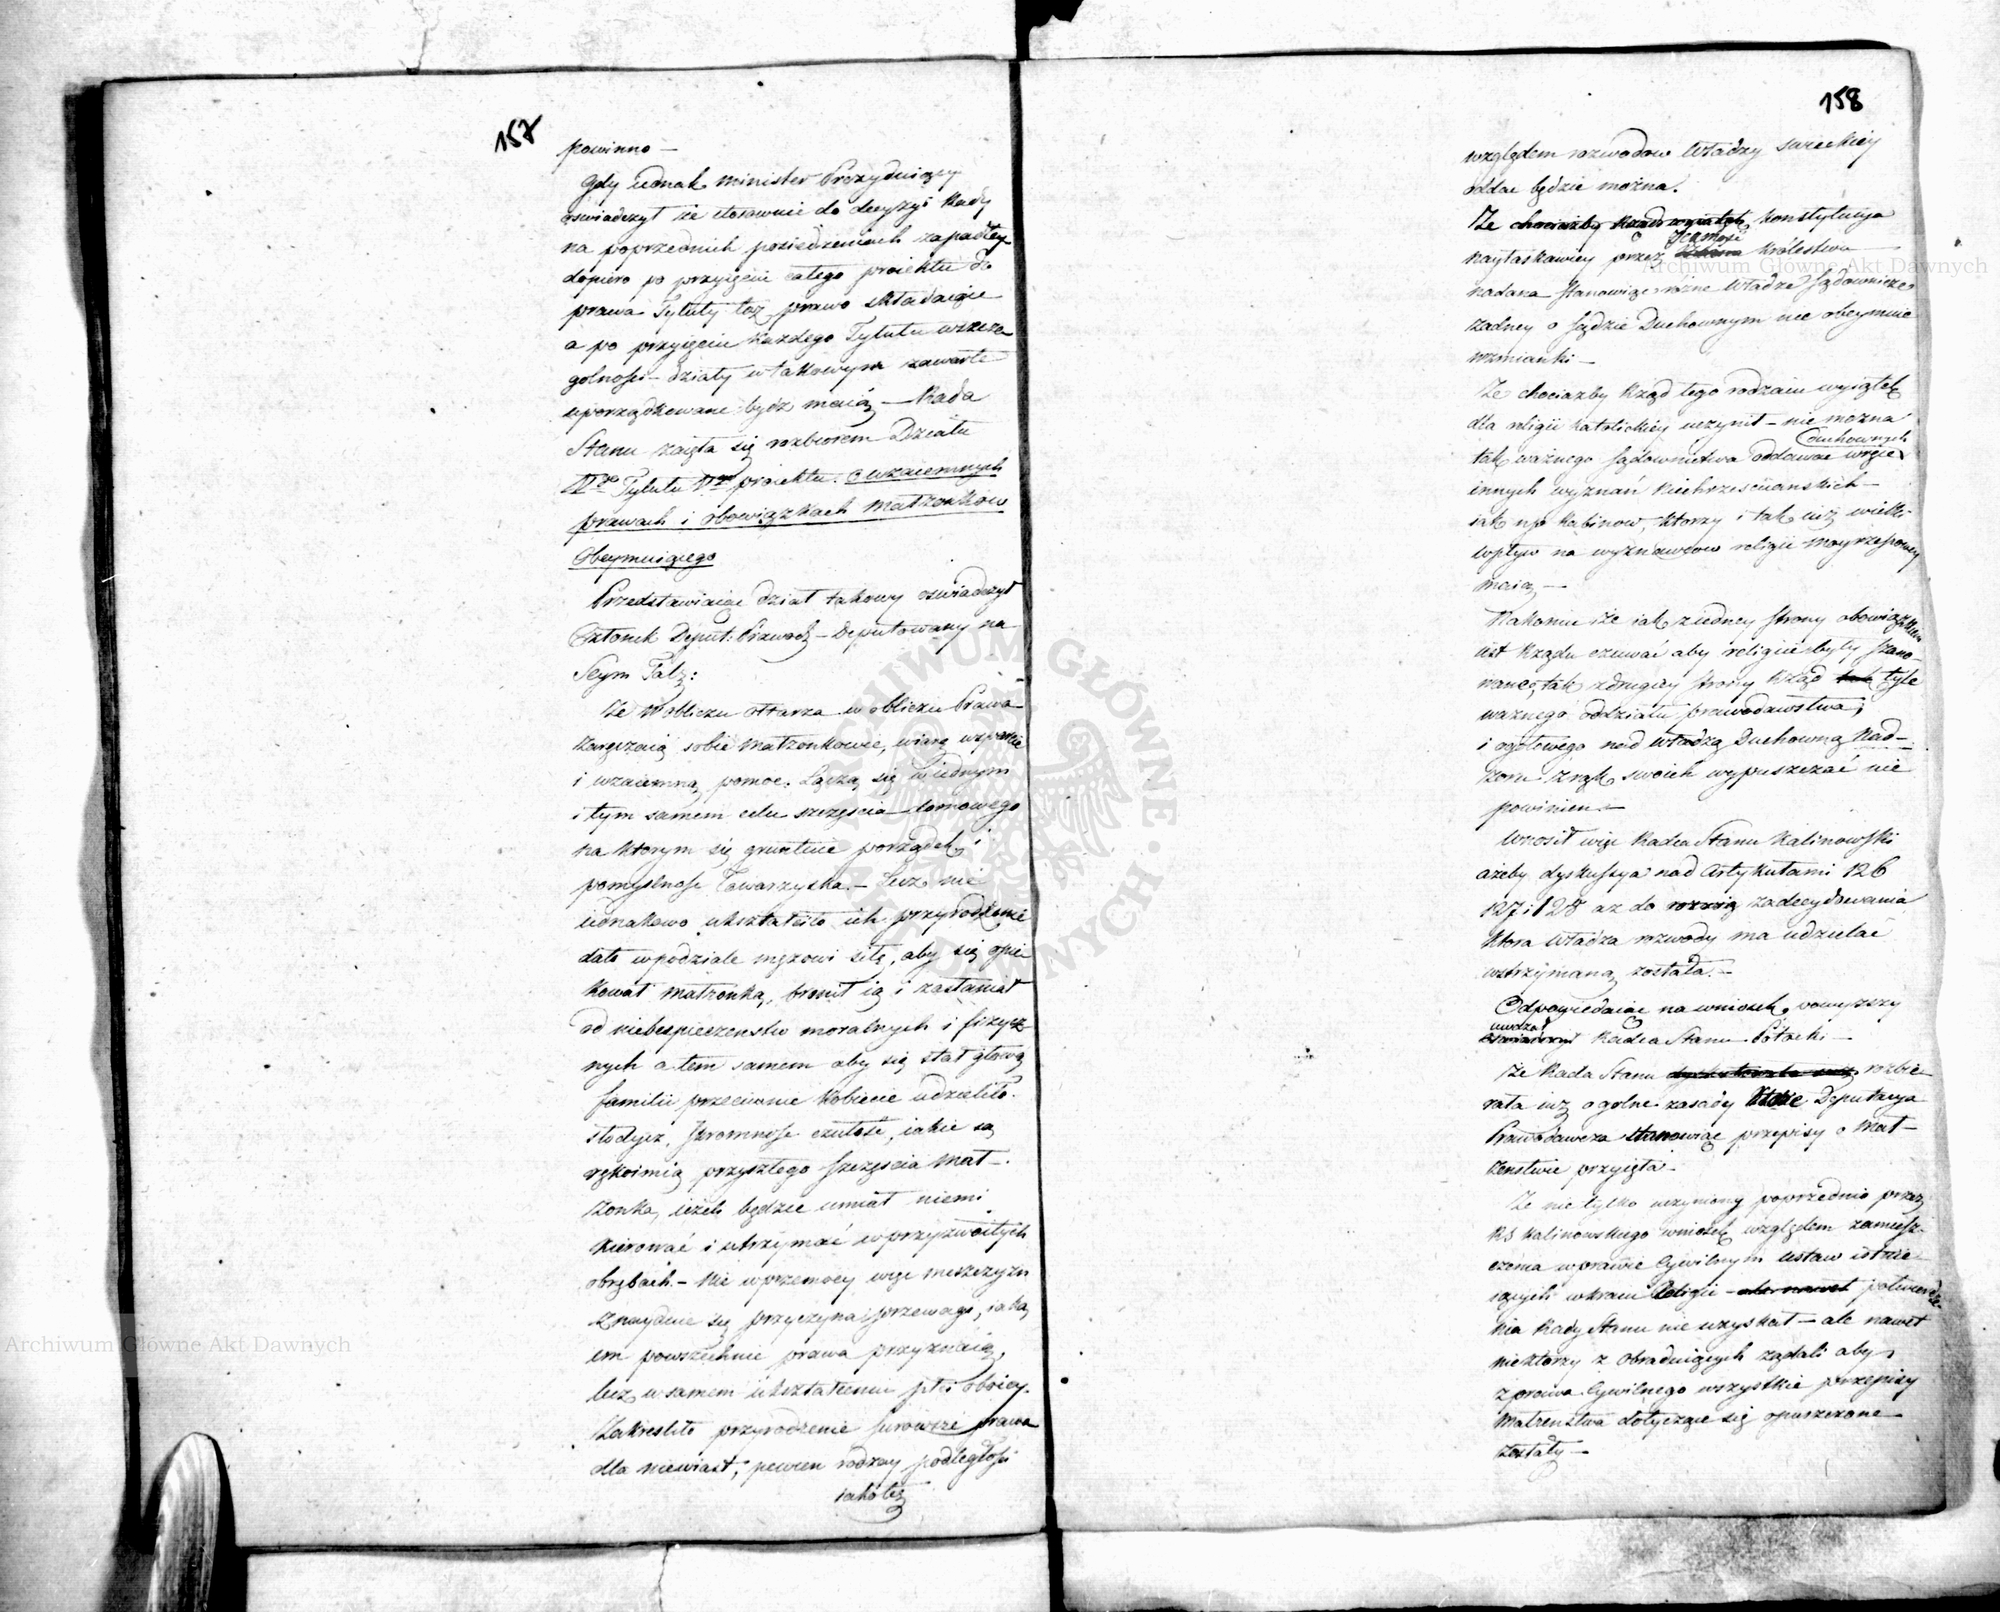 157
powinno —
Gdy iednak Minister Prezyduiący
oświadczył że stosownie do decyzyi Rady
na poprzednich posiedzeniach zapadłey
dopiero po przyięciu całego proiektu do
prawa Tytuły toż prawo składaiące
a po przyięciu każdego Tytułu wszcze
gólności działy w takowym zawarte
uporządkowane bydź maią — Rada
Stanu zaięła się rozbiorem Działu
IVgo Tytułu Vgo proiektu. o wzaiemnych
prawach i obowiązkach małżonków
Obeymuiącego
Przedstawiaiąc dział takowy oświadczył
Członek Deput: Prawod: Deputowany na
Seym Falz:
Że w obliczu ołtarza w obliczu Prawa
zaręczaią sobie małżonkowie, wiarę wsparcie
i wzaiemną pomoc. Łączą się w iednym
i tym samem celu szczęścia domowego
na którym się gruntuie porządek i
pomyślność Towarzyska. — Lecz nie
iednakowo ukształciło ich przyrodzenie
dało w podziale mężowi siłę, aby się opie
kował małżonką, bronił ią i zasłaniał
od niebespieczeństw moralnych i fizycz
nych a tem samem aby się stał głową
familii przeciwnie kobiecie udzieliło
słodycz, skromność czułość, iakie są
rękoimią przyszłego szczęścia mał—
żonka, ieżeli będzie umiał niemi
kierować i utrzymać w przyzwoitych
obrębach. — Nie w przemocy więc meszczyzn
znayduie się przyczyna przewagi, iaką
im powszechnie prawa przyznaią,
lecz w samem ukształceniu płci oboiey.
Zakreśliło przyrodzenie surowsze prawa
dla niewiast, pewien rodzay podległości
iako też
158
względem rozwodow Władzy swieckiey
oddać będzie można.
Że chociażby Rząd wyiątek konstytucya
nayłaskawiey przez Królestwu
nadana stanowiąc różne władze sądownicze
żadney o sądzie Duchownym nie obeymuie
wzmianki —
Że chociażby Rząd tego rodzaiu wyiątek
dla religii katolickiey uczynił — nie można
duchownych
tak ważnego sądownictwa oddawać w ręce
innych wyznań niechrześciańskich —
iak np Rabinow, którzy i tak iuż wielki
wpływ na wyznawców religii Moyżeszowey
maią —
Nakoniec że iak z iedney strony obowiązkiem
iest Rządu czuwać aby religie były szano-
wane, tak z drugiey strony Rząd tak tyle
ważnego oddziału prawodawstwa,
i ogólnego nad władzą Duchowną Nad—
zoru z rąk swoich wypuszczać nie
powinien —
Wnosił więc Radca Stanu Kalinowski
ażeby dyskussya nad Artykułami 126
127 i 128 aż do zadecydowania
która władza rozwody ma udzielać
wstrzymaną została. —
Odpowiedaiąc na wniosek powyższy
uważał
oświadczył Radca Stanu Potocki —
Że Rada Stanu rozbie
rała iuż ogólne zasady które Deputacya
Prawodawcza stanowiąc przepisy o Mał—
żeństwie przyięła —
Że nie tylko uczyniony poprzednio przez
RS Kalinowskiego wniosek względem zamiesz-
czenia w prawie Cywilnym ustaw istnie
iących w kraiu Religii — ale nawet potwierdze
nia Rady Stanu nie uzyskał — ale nawet
niektorzy z Obraduiących żądali aby
z prawa Cywilnego wszystkie przepisy
Małżeństwa dotyczące się opuszczone
zostały —
Archiwum Główne Akt Dawnych
Archiwum Główne Akt Dawnych
ARCHIWUM GŁÓWNE AKT DAWNYCH